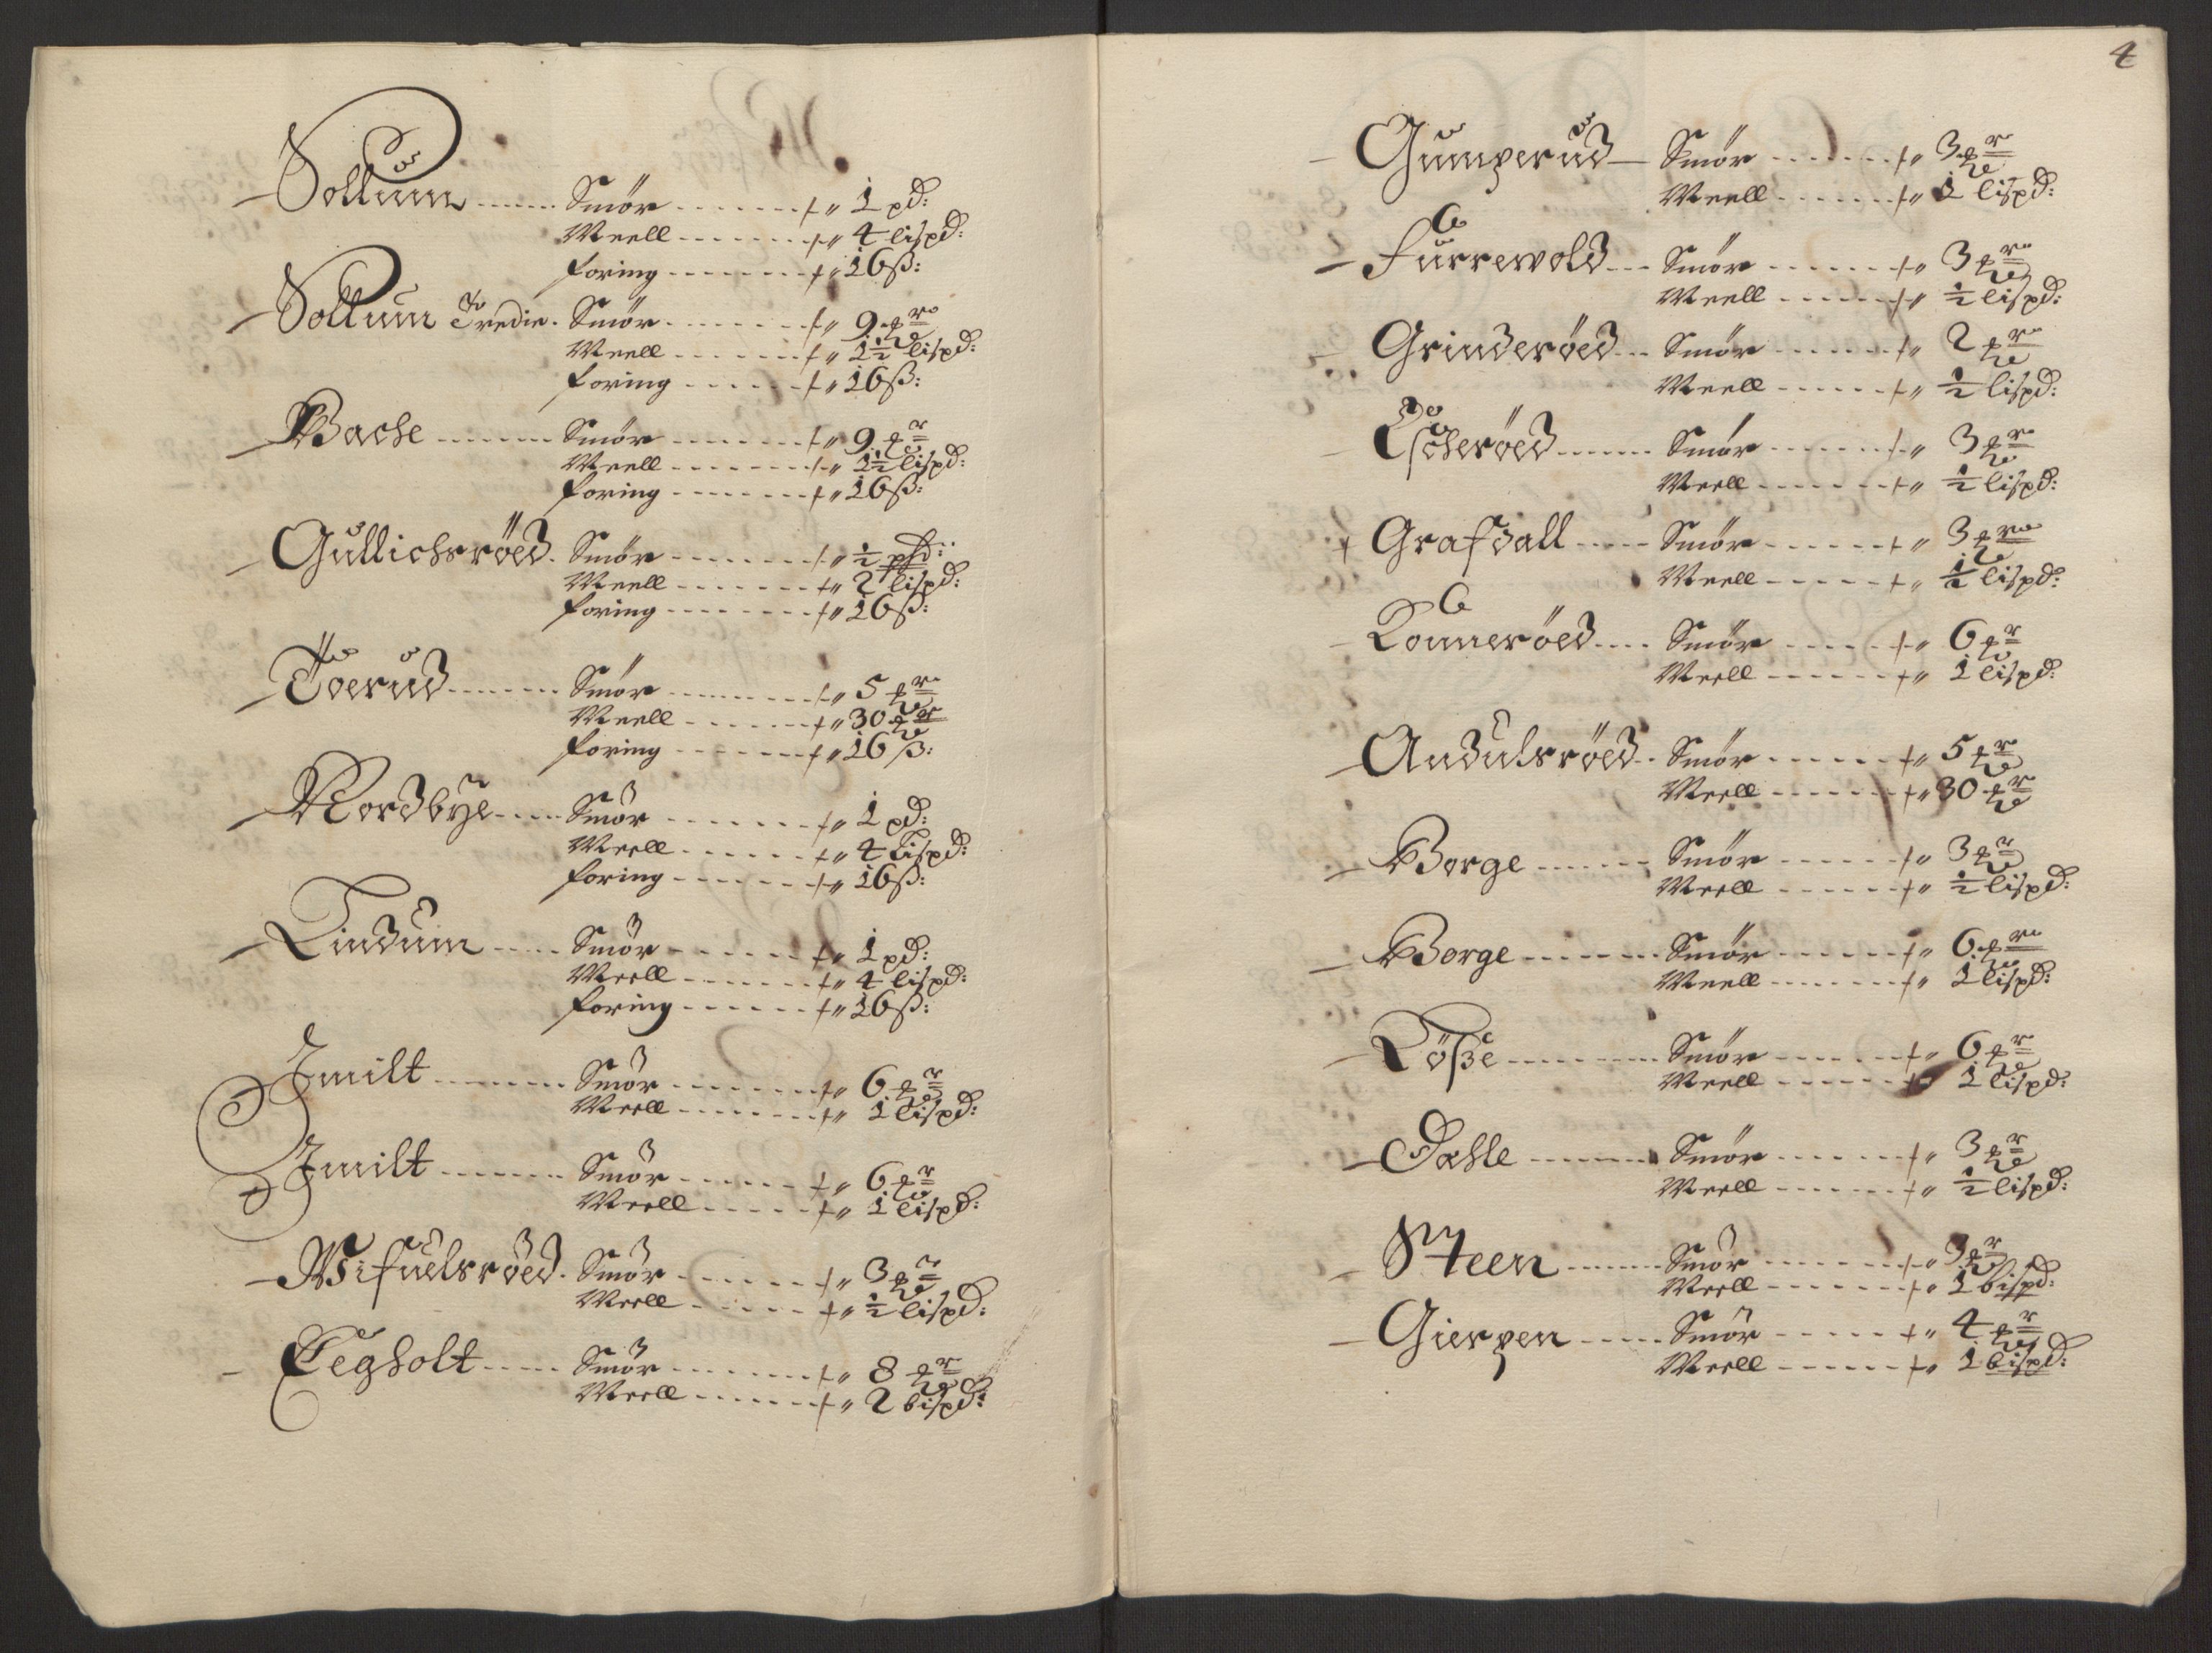 Sollum ...... Smör ....... 1 pd:
Meell ....... 4 lispd:
foring ....... 16 ß:
Sollum Tredie. Smör ....... 9 mr
Meell ....... 1½ lispd:
foring ...... 16 ß:
Bache ....... Smör ....... 9 mr
Meell ....... 1½ lispd:
foring ....... 16 ß:
Gullichsröed. Smör ....... ½ pd:
Meell ....... 2 lispd:
foring ....... 16 ß:
Töerud ....... Smör ....... 5 mr
Meell ....... 30 mr
foring ....... 16 ß:
Nordbÿe .... Smör ....... 1 pd:
Meell ...... 4 Lispd:
foring ...... 16 ß:
Lindum ..... Smör ...... 1 pd:
Meell ....... 4 lispd:
foring ...... 16 ß:
Jmilt ....... Smör ....... 6 mr
Meell ....... 1 lispd:
Jmilt ....... Smör ...... 6 mr
Meell ..... 1 lispd:
Wifuelsröed. Smör ...... 3 mr
Meell ..... ½ lispd:
Eegholt ..... Smör ...... 8 mr
Meell ...... 2 bispd:
4
Gumperud Smör ....... 3 mr
Meell ...... 1 lispd:
Furrewold ... Smör ...... 3 mr
Meell ..... ½ lispd:
Grinderöed ... Smör ...... 2 mr
Meell ...... ½ lispd:
Escheröed ...... Smör ...... 3 mr
Meell ...... ½ lispd:
Grafdall ..... Smör ...... 3 mr
Meell ..... ½ lispd:
Ronneröed .... Smör ..... 6 mr
Meell ...... 1 lispd:
Andulsröed .. Smör ...... 5 mr
Meell ...... 30 mr
Borge ...... Smör ...... 3 mr
Meell ...... ½ lispd:
Borge ....... Smör ...... 6 mr
Meell ....... 1 lispd:
Röße ........ Smör ...... 6 mr
Meell ...... 1 lispd:
Dahle ....... Smör ...... 3 mr
Meell ...... ½ lispd:
Steen ...... Smör ....... 3 mr
Meell ...... 1 bispd:
Gierpen ..... Smör ..... 4 mr
Meell ...... 1 bispd: